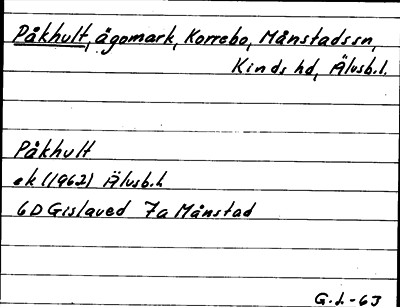 Påkhult, ägomark, Korrebo, Månstads sn,
Kinds hd, Älvsb.l.
Påkhult
ek (1962) Älvsb.l
6D Gislaved 7a Månstad
G.L.-63